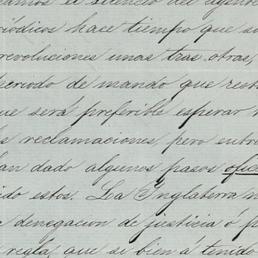 amos el silencio del agente
riódicos hace tiempo que su
revoluciones unas tras otras,
periodo de mando que rest
ue será preferible esperar
s reclamaciones, pero entre
an dado algunos pasos ofic
ido estos. La Inglaterra n
e denegacion de justicia ó p
regla, que si bien á tenido